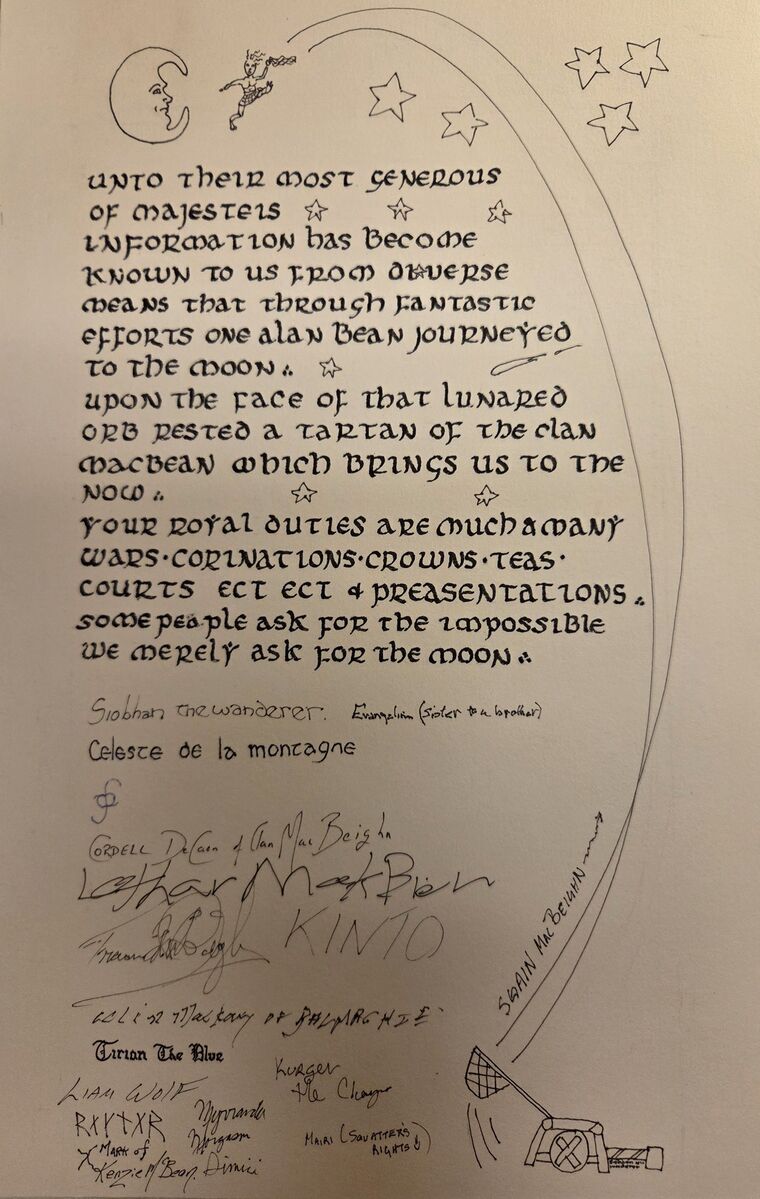 unto their most generous
of majesteis
information has become
known to us from diverse
means that through fantastic
efforts one alan Bean journeyed
to the moon ∴
upon the face of that lunared
orb rested a tartan of the clan
macBean which brings us to the
now ∴
your royal duties are much & many
wars · corinations · crowns · teas ·
courts ect ect & preasentations ∴
some people ask for the impossible
we merely ask for the moon ∴
Siobhan the wanderer. Evangeline (sister to a brother)
Celeste de la montagne
Cordell DeCaen of Clan Mac Beighn
Lothar MackBien
KINTO
SWAIN MacBEIGHN
of BALMAGHIE
Tirian The Blue
Liam Wolf
Kurger
the
ᚱᚷᚴᛏᚷᚱ
Mairi (SQUATTER'S
RIGHTS)
X Mark of
Kenzie M/Bean